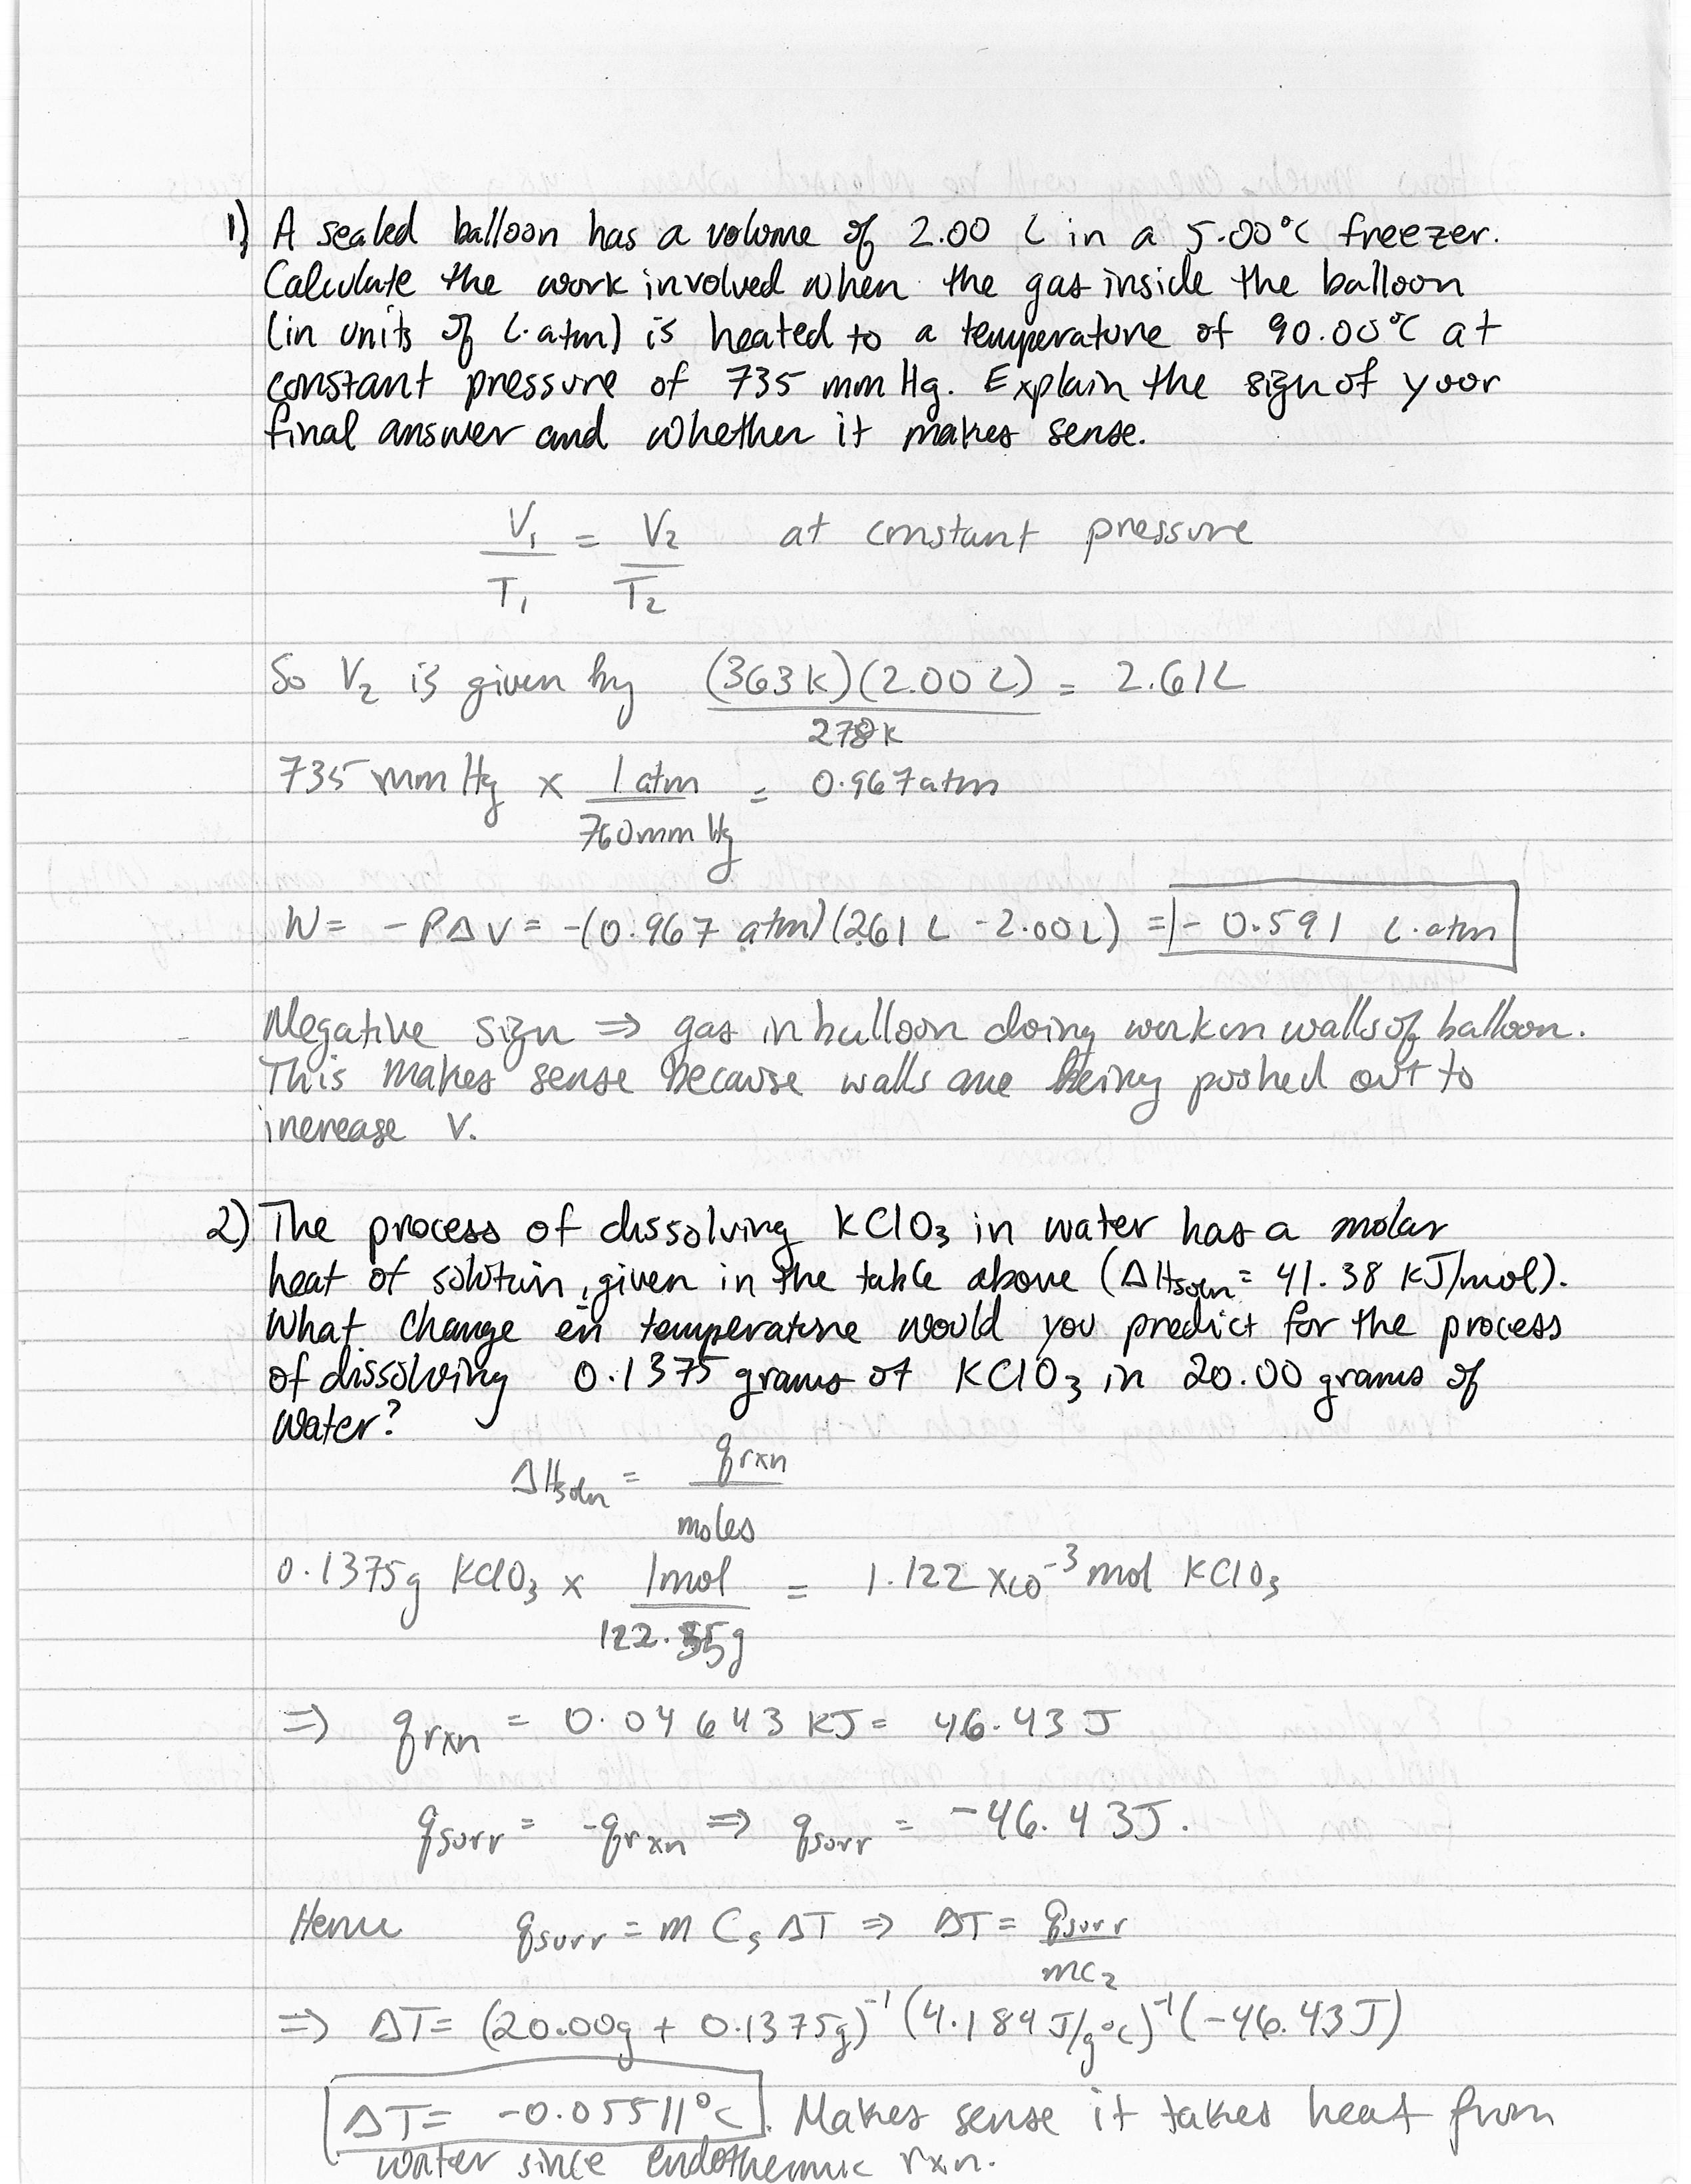 1) A sealed balloon has a volume of 2.00 L in a 5.00°C freezer.
Calculate the work involved when the gas inside the balloon
(in units of L·atm) is heated to a temperature of 90.00°C at
constant pressure of 735 mm Hg. Explain the sign of your
final answer and whether it makes sense.
V₁/T₁ = V₂/T₂ at constant pressure
So V₂ is given by (363K)(2.00L)/278K = 2.61L
735 mm Hg × 1 atm/760mm Hg = 0.967atm
W = -PΔV = -(0.967 atm)(2.61 L - 2.00L) = - 0.591 L·atm
Negative sign ⇒ gas in balloon doing work on walls of balloon.
This makes sense because walls are being pushed out to
increase V.
2) The process of dissolving KClO₃ in water has a molar
heat of solution, given in the table above (ΔHsoln = 41.38 KJ/mol).
What change in temperature would you predict for the process
of dissolving 0.1375 grams of KClO₃ in 20.00 grams of
water?
ΔHsoln = qrxn/moles
0.1375g KClO₃ × 1mol/122.55g = 1.122 ×10⁻³ mol KClO₃
⇒ qrxn = 0.04643 KJ = 46.43 J
qsurr = -qrxn ⇒ qsurr = -46.43J.
Hence qsurr = m Cs ΔT ⇒ ΔT = qsurr/mCs
⇒ ΔT = (20.00g + 0.1375g)⁻¹ (4.184 J/g°C)⁻¹ (-46.43J)
ΔT = -0.05511°C. Makes sense it takes heat from
water since endothermic rxn.